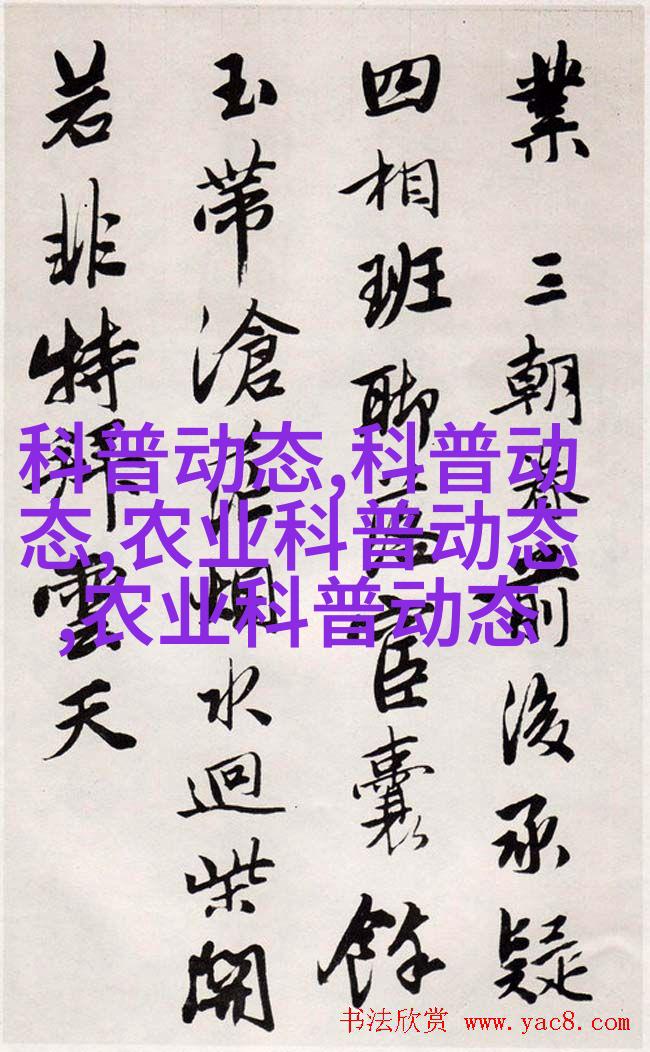 業 三朝前後承疑
四相班聊宦臣囊餘
玉帶滄烟水迴柴開
若非特拜雲天
科普动态,科普动
态,农业科普动态
,农业科普动态
书法欣赏 www.yac8.com